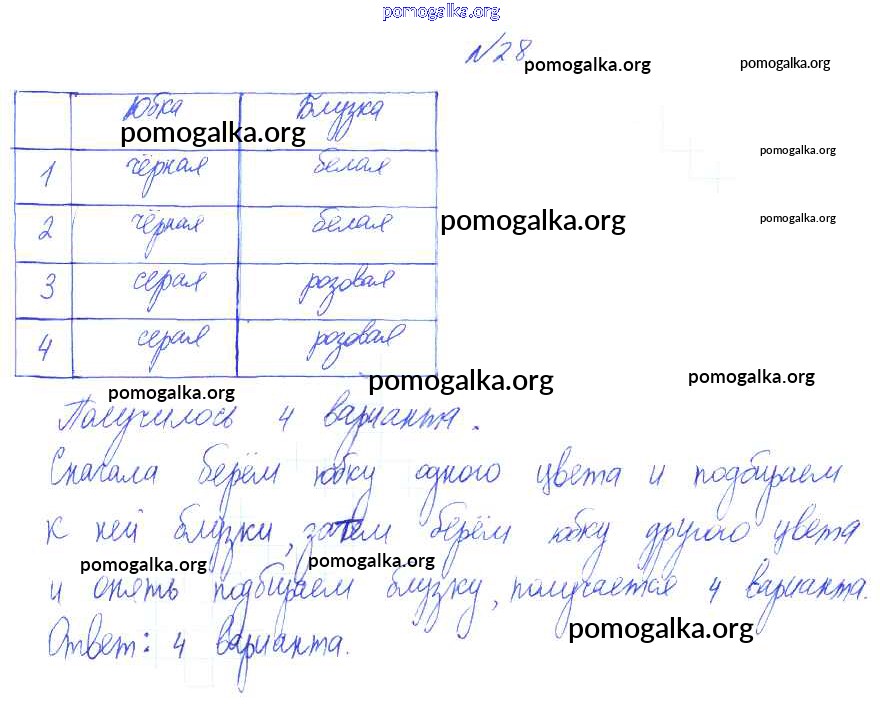 pomogalka.org
№28
pomogalka.org pomogalka.org
Юбка Блузка
pomogalka.org
pomogalka.org
1 чёрная белая
2 чёрная белая
pomogalka.org pomogalka.org
3 серая розовая
4 серая розовая
pomogalka.org pomogalka.org pomogalka.org
Получилось 4 варианта.
Сначала берём юбку одного цвета и подбираем
к ней блузки, затем берём юбку другого цвета
pomogalka.org pomogalka.org
и опять подбираем блузку, получается 4 варианта.
pomogalka.org
Ответ: 4 варианта.